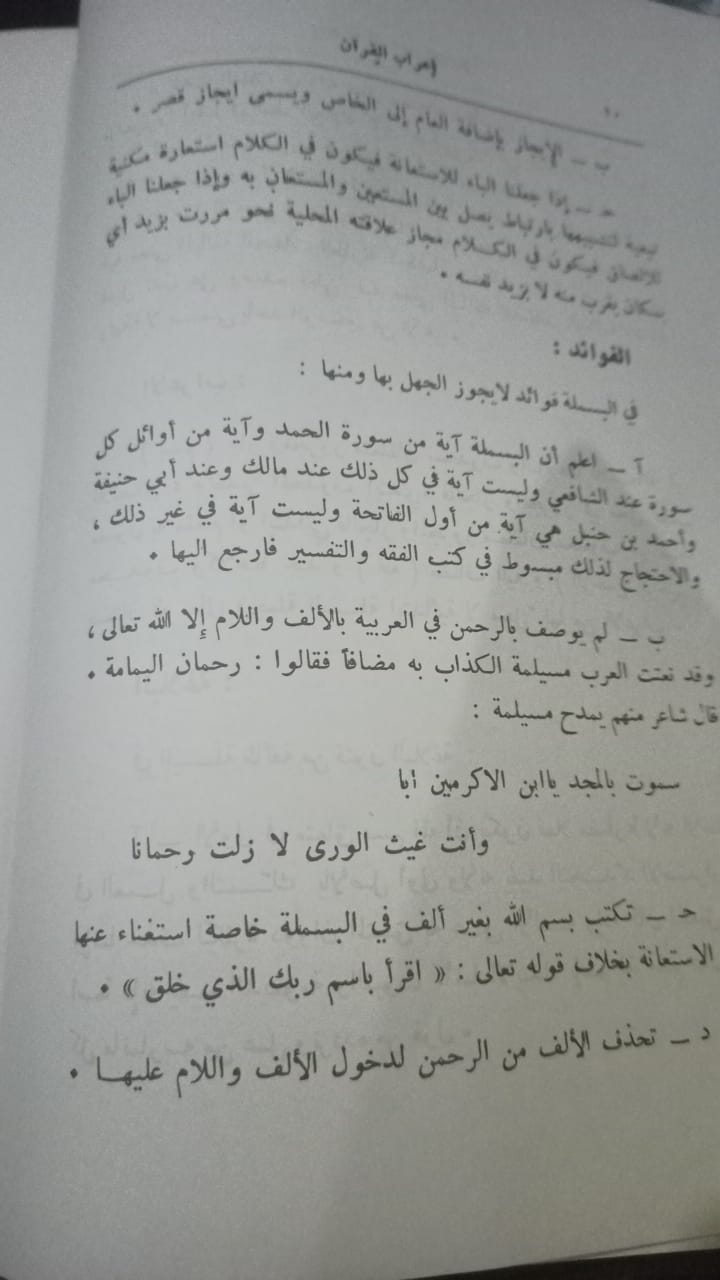 إعراب القرآن
١٠
ب ــ الإيجاز بإضافة العام إلى الخاص ويسمى ايجاز قصر .
حـ ــ إذا جعلنا الباء للاستعانة فيكون في الكلام استعارة مكنية
تبعية لتشبيهها بارتباط يصل بين المستعين والمستعان به وإذا جعلنا الباء
للإلصاق فيكون في الكلام مجاز علاقته المحلية نحو مررت بزيد أي
بمكان يقرب منه لا بزيد نفسه .
الفوائد :
في البسملة فوائد لايجوز الجهل بها ومنها :
آ ــ اعلم أن البسملة آية من سورة الحمد وآية من أوائل كل
سورة عند الشافعي وليست آية في كل ذلك عند مالك وعند أبي حنيفة
وأحمد بن حنبل هي آية من أول الفاتحة وليست آية في غير ذلك ،
والاحتجاج لذلك مبسوط في كتب الفقه والتفسير فارجع اليها .
ب ــ لم يوصف بالرحمن في العربية بالألف واللام إلا الله تعالى ،
وقد نعتت العرب مسيلمة الكذاب به مضافاً فقالوا : رحمان اليمامة .
قال شاعر منهم يمدح مسيلمة :
سموت بالمجد ياابن الاكرمين أبا
وأنت غيث الورى لا زلت رحمانا
حـ ــ تكتب بسم الله بغير ألف في البسملة خاصة استغناء عنها
الاستعانة بخلاف قوله تعالى : « اقرأ باسم ربك الذي خلق » .
د ــ تحذف الألف من الرحمن لدخول الألف واللام عليهـا .